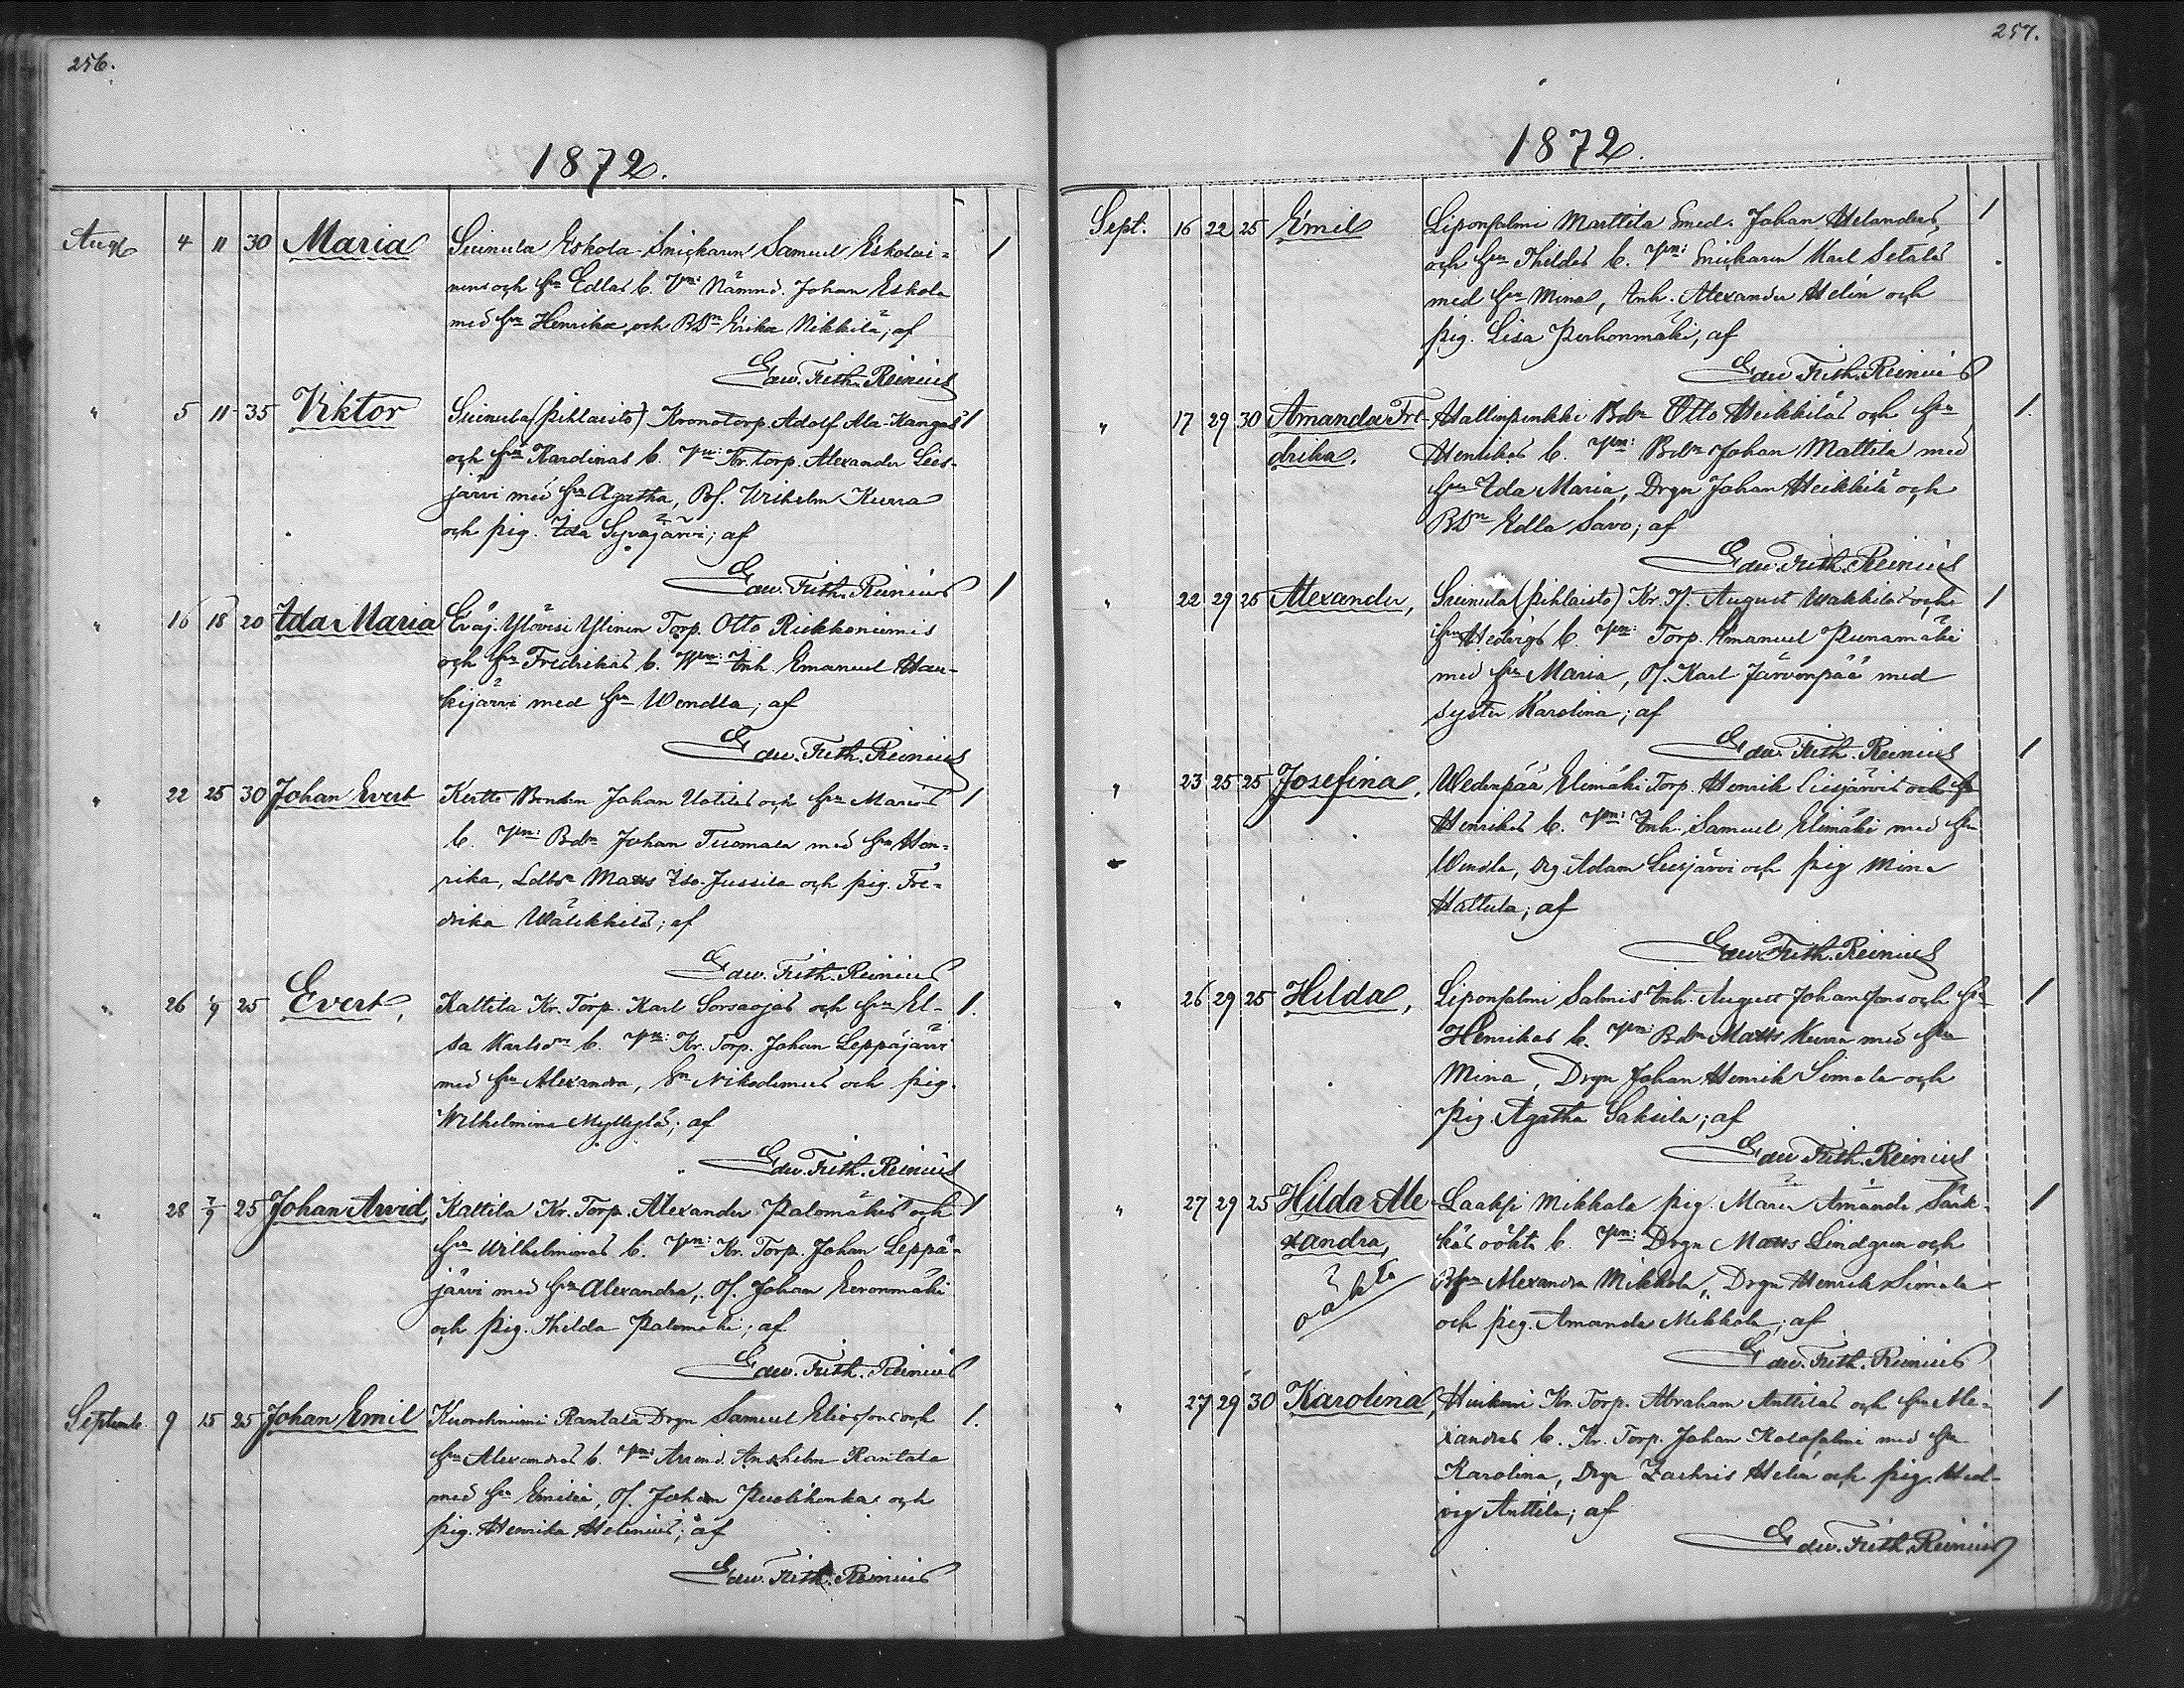 256.
1872.
Aug. 4 11 30 Maria Suinula Eskola Snickaren Samuel Eskolai=
nens och hu Edlas b. Vn: Nämnd. Johan Eskola
med hu Henrika och BDn Erika Nikkilä; af
Edw. Frith. Reinius
" 5 11 35 Viktor Suinula (Pihlaisto) Kronotorp. Adolf Ala-Kangas 1
och hu Karolinas b. Vn: Kr. torp. Alexander Lies-
järvi med hu Agatha, Wilhelm Kurra
och pig. Ida Syväjärvi; af
Edw. Frith. Reinius 1
" 16 18 20 Ida Maria Eväj. Ylövesi Ylinen Torp. Otto Riekkoniemis
och hu Fredrikas b. Vn: Inh. Emanuel Hau-
kijärvi med hu Wendla; af
Edw. Frith. Reinius
" 22 25 30 Johan Evert Kertte Bonden Johan Uotilas och hu Marias 1
b. Vn: Bdn Johan Tuomala med hu Hen-
rika, Matts Iso-Jussila och pig. Fre-
drika Wälikkilä; af
Edw. Frith. Reinius
" 26 1/9 25 Evert, Kattila Kr. Torp. Karl Sorsaojas och hu El- 1.
sa Karlsdr b. Vn: Kr. Torp. Johan Leppäjärvi
med hu Alexandra, Sn Nikodemus och pig.
Wilhelmina Myllylä; af
Edw. Frith. Reinius
" 28 7/9 25 Johan Arvid, Kattila Kr. Torp. Alexander Palomäkis och 1
hu Wilhelminas b. Vn: Kr. Torp. Johan Leppä-
järvi med hu Alexandra, Johan Eeronmäki
och pig. Hilda Palomäki; af
Edw. Frith. Reinius
Septemb. 9 15 25 Johan Emil Kuorehniemi Rantala Drgn Samuel Eliassons och 1.
hu Alexandras b. Vn: Arrend. Anshelm Rantala
med hu Emilia, Johan Puolihonka och
pig. Henrika Helenius; af
Edw. Frith. Reinius
257.
1872.
Sept. 16 22 25 Emil Liponsalmi Marttila Smed. Johan Helanders, 1
och hu Thildas b. Vn: Snickaren Karl Setälä
med hu Mina, Inh. Alexander Helin och
pig. Lisa Perhonmäki, af
Edw. Frith. Reinius
" 17 29 30 Amanda Fre- Hallinpenkki Bdn Otto Heikkiläs och hu 1.
drika. Henrikas b. Vn: Bdn Johan Mattila med
hu Ida Maria, Drgn Johan Heikkilä och
BDn Edla Savo; af
Edw. Frith. Reinius
" 22 29 25 Alexander, Suinula (Pihlaisto) Kr. August och 1
hu Hedvigs b. Vn: Torp. Emanuel Punamäki
med hu Maria, Karl Järvenpää med
syster Karolina; af
Edw. Frith. Reinius 1
" 23 25 25 Josefina, Wedenpää Elimäki Torp. Henrik Liesjärvis och hu
Henrikas b. Vn: Inh. Samuel Elimäki med hu
Wendla, Drg Adam Liesjärvi och pig Mina
Hattula; af
Edw. Frith. Reinius
" 26 29 25 Hilda, Liponsalmi Salmis Inh. August Johanssons och hu 1
Henrikas b. Vn: Bdn Matts Kurra med hu
Mina, Drgn Johan Henrik Simola och
pig. Agatha Saksila; af
Edw. Frith. Reinius
" 27 29 25 Hilda Ale- Laakspi Mikkola pig. Maria Amanda Särk- 1
xandra, käs oökta b. Vn: Drgn Matts Lindgren och
oäkta Alexandra Mikkola, Drgn Henrik Simola
och pig. Amanda Mikkola; af
Edw. Frith. Reinius
" 27 29 30 Karolina, Kr. Torp. Abraham Anttilas och hu Ale- 1
xandras b. Kr. Torp. Johan Kalasalmi med hu
Karolina, Drgn Zachris Helin och pig. Hed-
vig Anttila; af
Edw. Frith. Reinius